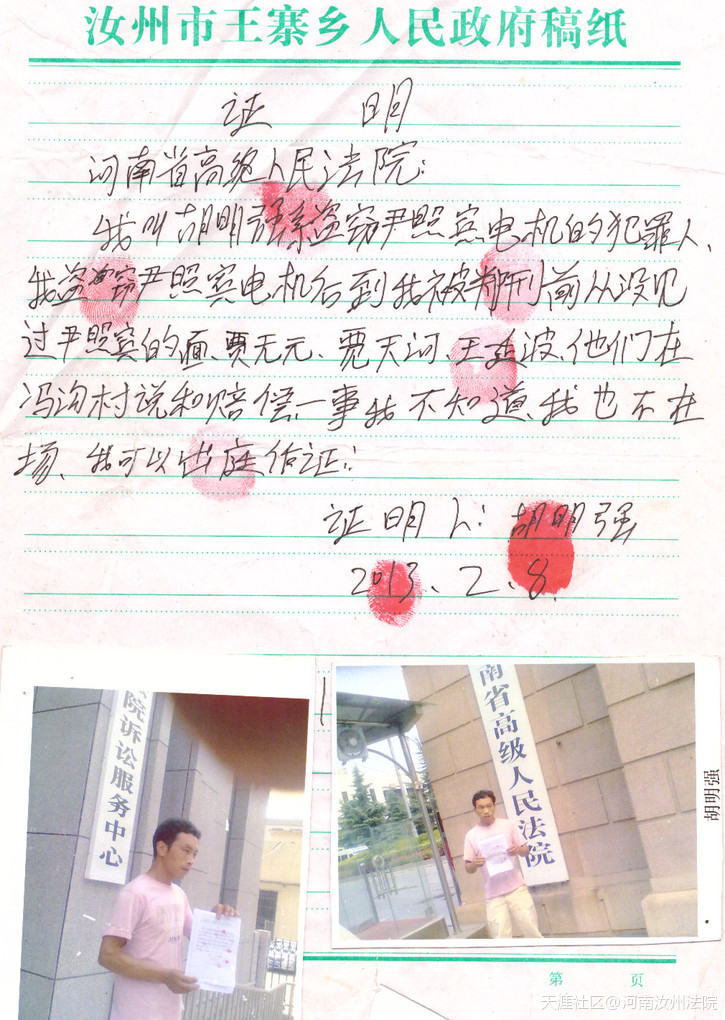 汝州市王寨乡人民政府稿纸
证 明
河南省高级人民法院:
我叫胡明强系盗窃尹照宾电机的犯罪人、
我盗窃尹照宾电机后到我被判刑前从没见
过尹照宾的面、贾无元、贾天河、王延波、他们在
冯沟村说和赔偿一事我不知道、我也不在
场、我可以出庭作证:
证明人: 胡明强
2013、2、8
院诉讼服务中心
南省高级人民法院
胡明强
第 页
天涯社区@河南汝州法院